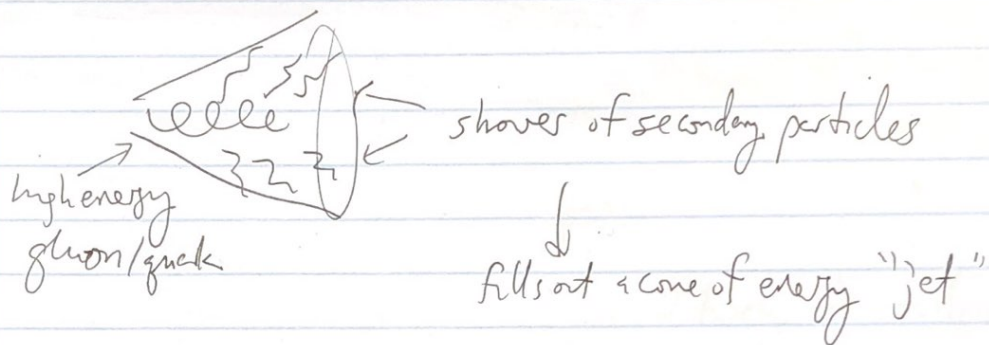 shower of secondary particles
high energy
gluon/quark
fills out a cone of energy "jet"